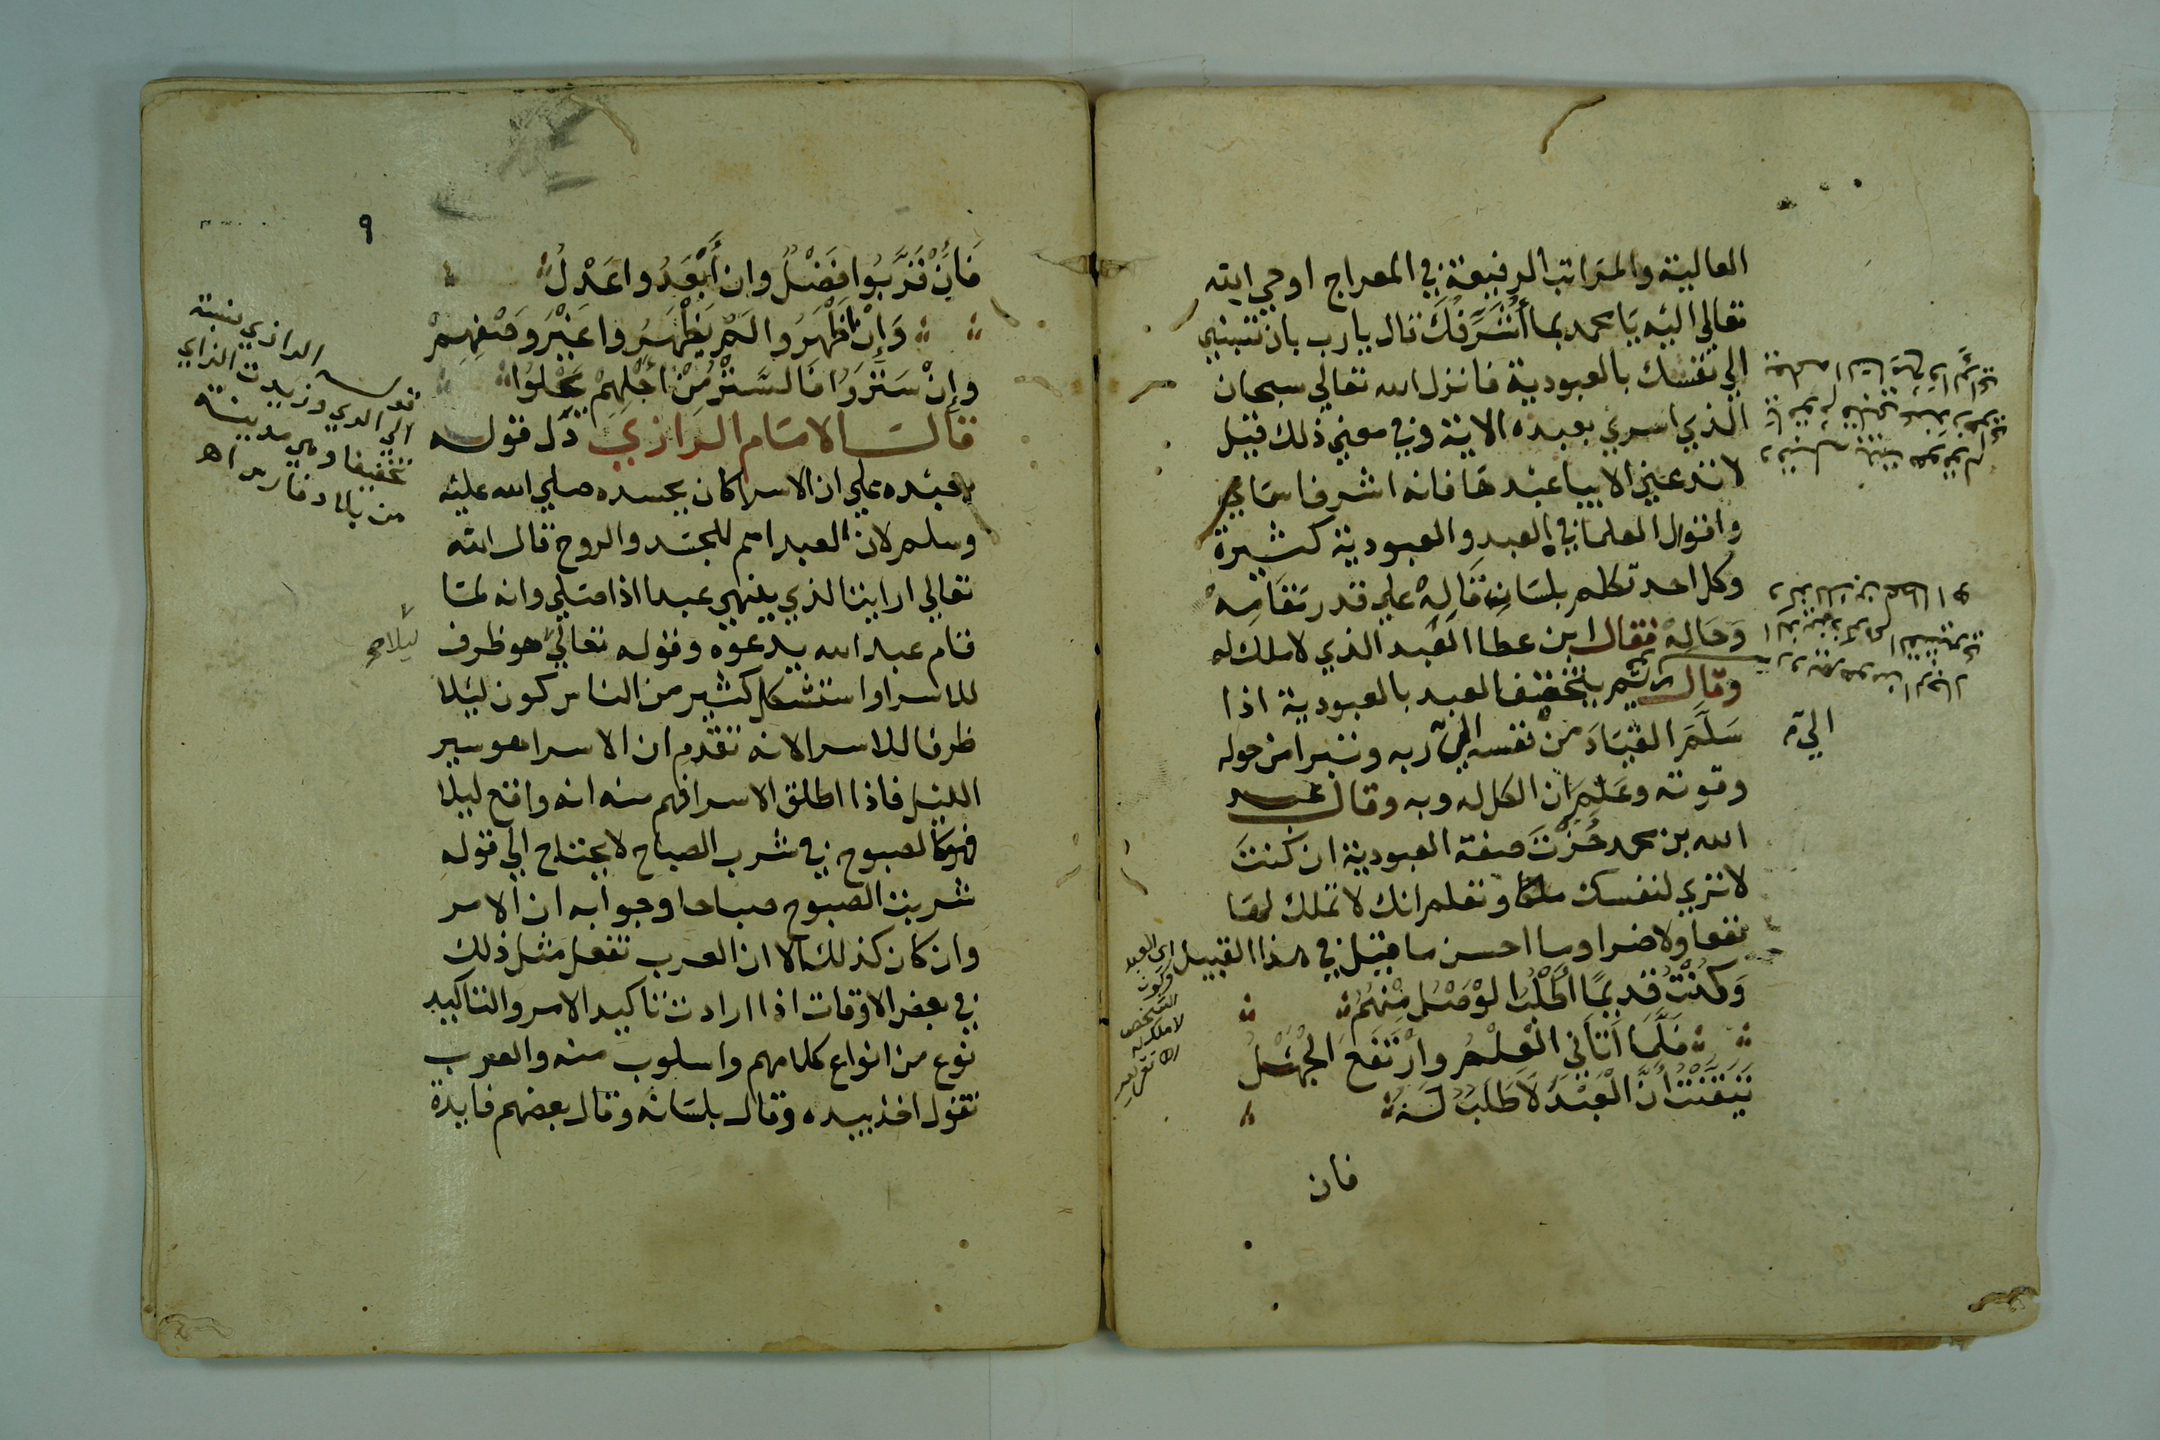 العالية والمراتب الرفيعة في المعراج اوحي الله
تعالي اليه يَا محمد بما أُشَرِّفُكَ قال يا رب بان تنسبني
الي نفسك بالعبودية فانزل الله تعالي سبحان
الذي اسري بعبده الاية وفي معني ذلك قيل
لا تدعني الا بيا عبدها فانه اشرف اسماي
واقوال العلما في العبد والعبودية كثيرة
وكل احد تكلم بلسان قَالِهْ علي قدر مَقَامِهْ
وَحَالِهْ فقال ابن عطا العبد الذي لا ملك له
وقال رويم يتحقق العبد بالعبودية اذا
سَلَّمَ القيَادَ منْ نفسه الي ربه وتبرا من حوله
وقوته وعَلِمَ ان الكل له وبه وقال عبد
الله بن محمد حُزْتَ صفة العبودية ان كنتَ
لا تري لنفسك ملكا وتعلم انك لا تملك لها
نفعا ولا ضرا وما احسن ما قيل في هذا القبيل
وَكُنْتُ قَدِيمًا أَطْلُبُ الوَصْلَ مِنْهُمُ
فَلَمَّا أَتَانِي الْعِلْمُ وارْتَفَعَ الجَهْلُ
تَيَقَّنْتُ أَنَّ الْعَبْدَ لَا طَلَبٌ لَهُ
فان
الي
اي العبد
وكون
الشخص
لا ملك له
اه تقرير
٩
فَإِنْ قَرَّبُوا فَضْلٌ وان أَبْعَدُوا عَدْلُ
وَإِنْ أَظْهَرُوا لَمْ يَظْهَرُوا غَيْرَ وَصْفِهِمْ
وإِنْ سَتَرَوُا فَالسَّتْرُ مِنْ أَجْلِهِمْ يَحْلُوا
قال الامام الرازي دَل قوله
بعبده علي ان الاسرا كان بجسده صلي الله عليه
وسلم لان العبد اسم للجسد والروح قال الله
تعالي ارايت الذي ينهي عبدا اذا صلي وانه لما
قام عبد الله يدعوه وقوله تعالي هو ظرف
للاسرا واستشكل كثير من الناس كون ليلا
ظرفا للاسرا لانه تقدم ان الاسرا هو سير
الليل فاذا اطلق الاسرا فهم منه انه واقع ليلا
فهو كالصبوح في شرب الصباح لا يحتاج الي قوله
شربت الصبوح صباحا وجوابه ان الامر
وان كان كذلك الا ان العرب تفعل مثل ذلك
في بعض الاوقات اذا ارادت تاكيد الامر والتاكيد
نوع من انواع كلامهم واسلوب منه والعرب
تقول اخذ بيده وقال بلسانه وقال بعضهم فايدة
قوله الرازي نسبة
الي الري وزيدت الزاي
تخفيفا وهي مدينة
من بلاد فارس اه
ليلا صح